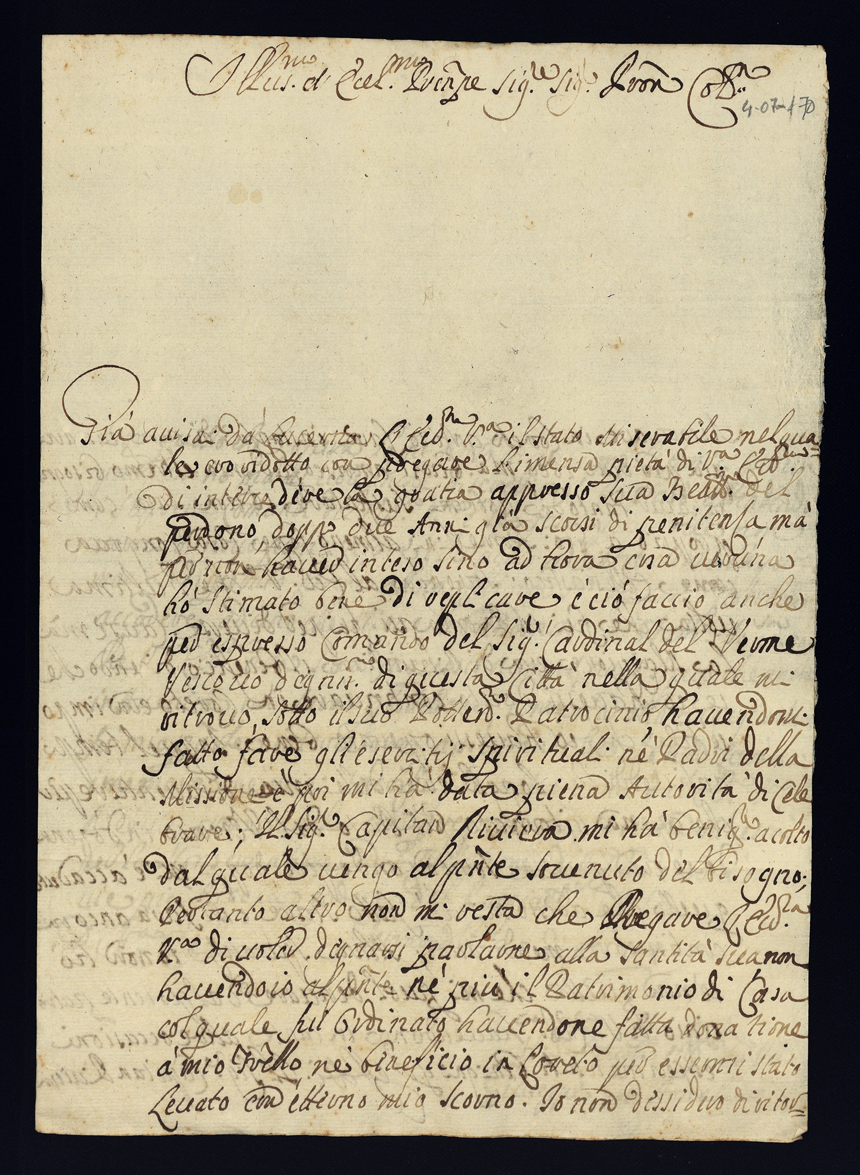 Illus.mo et Ecel.mo Prinpe Sig.re Sig.re Pron Col.mo
4-07-170
Già avisai da Lucerna l'Ecc.za V.ra il stato miserabile nel qua
le ero ridotto con pregare l'imensa pietà di V.ra Ecc.za
di intercedere la gratia appresso Sua Bead.ne del
perdono, dopp due Anni già scorsi di penitensa mà
per non haver inteso sino ad hora cosa veruna
hò stimato bene di replicare e ciò faccio anche
per espresso Comando del Sig.r Cardinal del Verme
Vescovo dignis.mo di questa Città nella quale mi
ritrovo, sotto il suo Potten.mo Patrocinio havendomi
fatto fare gli esercitij spirituali ne Padri della
Missione e poi mi hà data piena Autorità di Cele
brare; Il Sig.r Capitan Riviera mi hà benig.te acolto
dal quale vengo al pñte sovenuto del bisogno.
Pertanto altro non mi resta che Pregare l'Ecc.za
V.ra di voler degnarsi parlarne alla Santità Sua non
havendo io al pñte nè più il Patrimonio di Casa
col quale fui Ordinato havendone fatta donatione
à mio frello nè beneficio in Loreto per essermi stato
Levato con etterno mio scorno. Io non dessidero di ritor